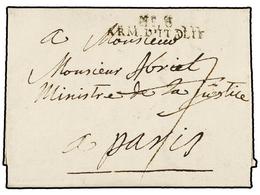 Nº. 8
ARM. D'ITALIE
a Monsieur
Monsieur Abrial
Ministre de la Justice
a paris